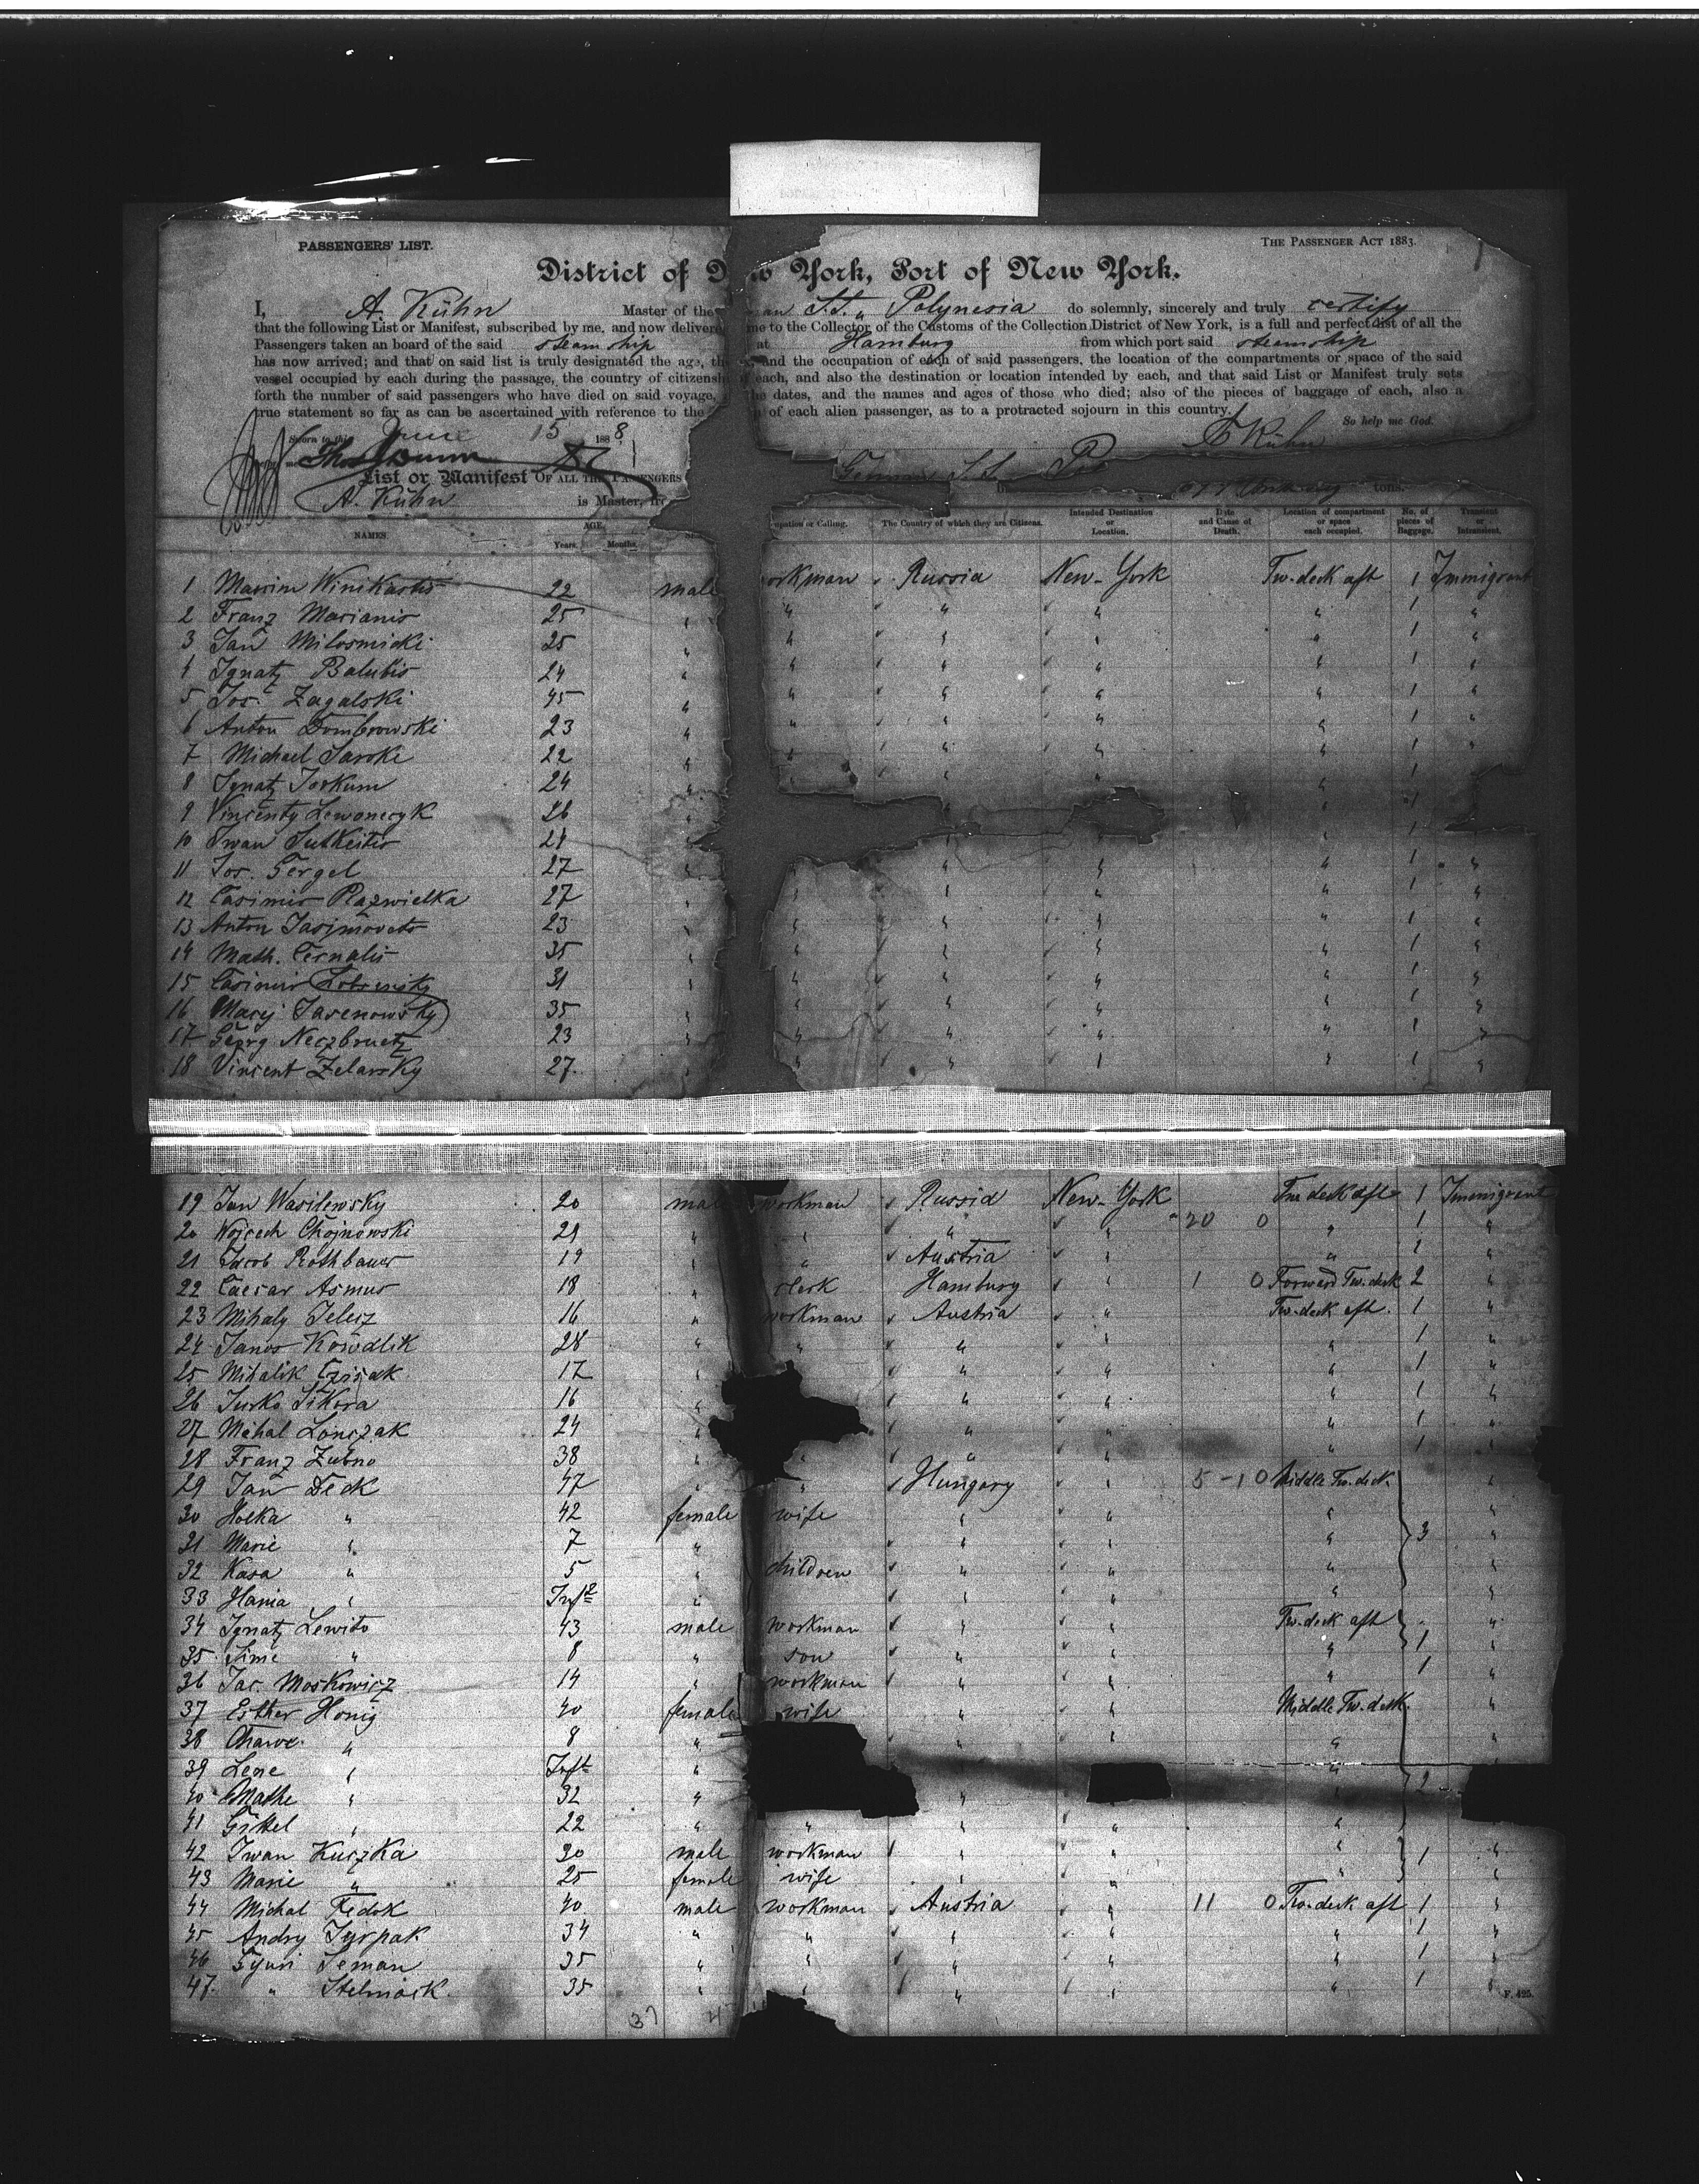 PASSENGERS' LIST. THE PASSENGER ACT 1883.
District of New York, Port of New York.
I, A. Kühn Master of the S.S. „ Polynesia do solemnly, sincerely and truly certify
that the following List or Manifest, subscribed by me, and now delivered me to the Collector of the Customs of the Collection District of New York, is a full and perfect list of all the
Passengers taken an board of the said steam ship at Hamburg from which port said steamship
has now arrived; and that on said list is truly designated the age, the and the occupation of each of said passengers, the location of the compartments or space of the said
vessel occupied by each during the passage, the country of citizenship each, and also the destination or location intended by each, and that said List or Manifest truly sets
forth the number of said passengers who have died on said voyage, the dates, and the names and ages of those who died; also of the pieces of baggage of each, also a
true statement so far as can be ascertained with reference to the of each alien passenger, as to a protracted sojourn in this country.
So help me God.
Sworn to this June 15 1888 Kühn
List or Manifest OF ALL THE PASSENGERS German S.S.
A. Kühn is Master, tons.
NAMES. AGE. Years. Months. upation or Calling. The Country of which they are Citizens. Intended Destination or Location. Date and Cause of Death. Location of compartment or space each occupied. No. of pieces of Baggage. Transient or Intransient.
1 22 male workman Russia New-York Tw-deck aft 1 Immigrant
2 Franz Marianis 25 " " " " " 1 "
3 Jan Milosmicki 25 " " " " " 1 "
4 Ignatz Balubis 24 " " " " " 1 "
5 Jos. Zagalski 45 " " " " " 1 "
6 Anton Dombrowski 23 " " " " " 1 "
7 Michael Saroke 22 " " " " " 1 "
8 Ignatz Jorkum 24 " " " " 1
9 Vincenty Lewonecyk 26 " " 1
10 Iwan Sutkeitis 21 " " " 1
11 Jos. Gergel 27 " " " " " 1 "
12 Casimir Razwielka 27 " " " " " 1 "
13 Anton 23 " " " " " 1 "
14 Math. Cernalis 35 " " " " " 1 "
15 Casimir 31 " " " " " 1 "
16 Macij Jasenowsky 35 " " " " " 1 "
17 Georg Neczbruetz 23 " " " " " 1 "
18 Vincent Zelarsky 27 " " " " " 1 "
19 Jan Wasilewsky 20 male workman Russia New-York Tw. deck aft 1 Immigrant
20 Wojcech Chojnowski 21 " " " " 20 0 " 1 "
21 Jacob Rothbauer 19 " " Austria " " 1 "
22 Caesar Asmus 18 " clerk Hamburg " 1 0 Forward Tw. deck 2 "
23 Mihaly Telesz 16 " workman Austria " Tw-deck aft. 1 "
24 Janos Kowdlik 28 " " " " " 1 "
25 Mihalik Czisak 17 " " " " 1 "
26 Jurko Sikora 16 " " " " 1 "
27 Mihal Lonczak 24 " " " " 1 "
28 Franz Zubno 38 " " " " 1 "
29 Jan Deck 47 " " Hungary " 5 - 10 Middle Tw. deck "
30 Holka " 42 female wife " " " "
31 Marie " 7 " " " " 3 "
32 Kasa " 5 " children " " " "
33 Hania " Inft " " " " "
34 Ignatz Lewito 43 male workman " " Tw. deck aft "
35 Sime " 8 " son " " " 1 "
36 Jac. Moskowicz 14 " workman " " " 1 "
37 Esther Honig 40 female wife " " Middle Tw. deck. "
38 " 8 " " " " "
39 Lene " Inft " " "
40 Mathe " 32 " " 2
41 Gittel " 22 " " " " "
42 Iwan Kuczka 30 male workman " " " 1 "
43 Marie " 25 female wife " " " "
44 Michal Fedok 40 male workman Austria " 11 0 Tw. deck aft 1 "
45 Andry 34 " " " " " 1 "
46 Gyuri Seman 35 " " " " " 1 "
47. " Stelmack. 35 " " " " " 1 "
F. 425.
37